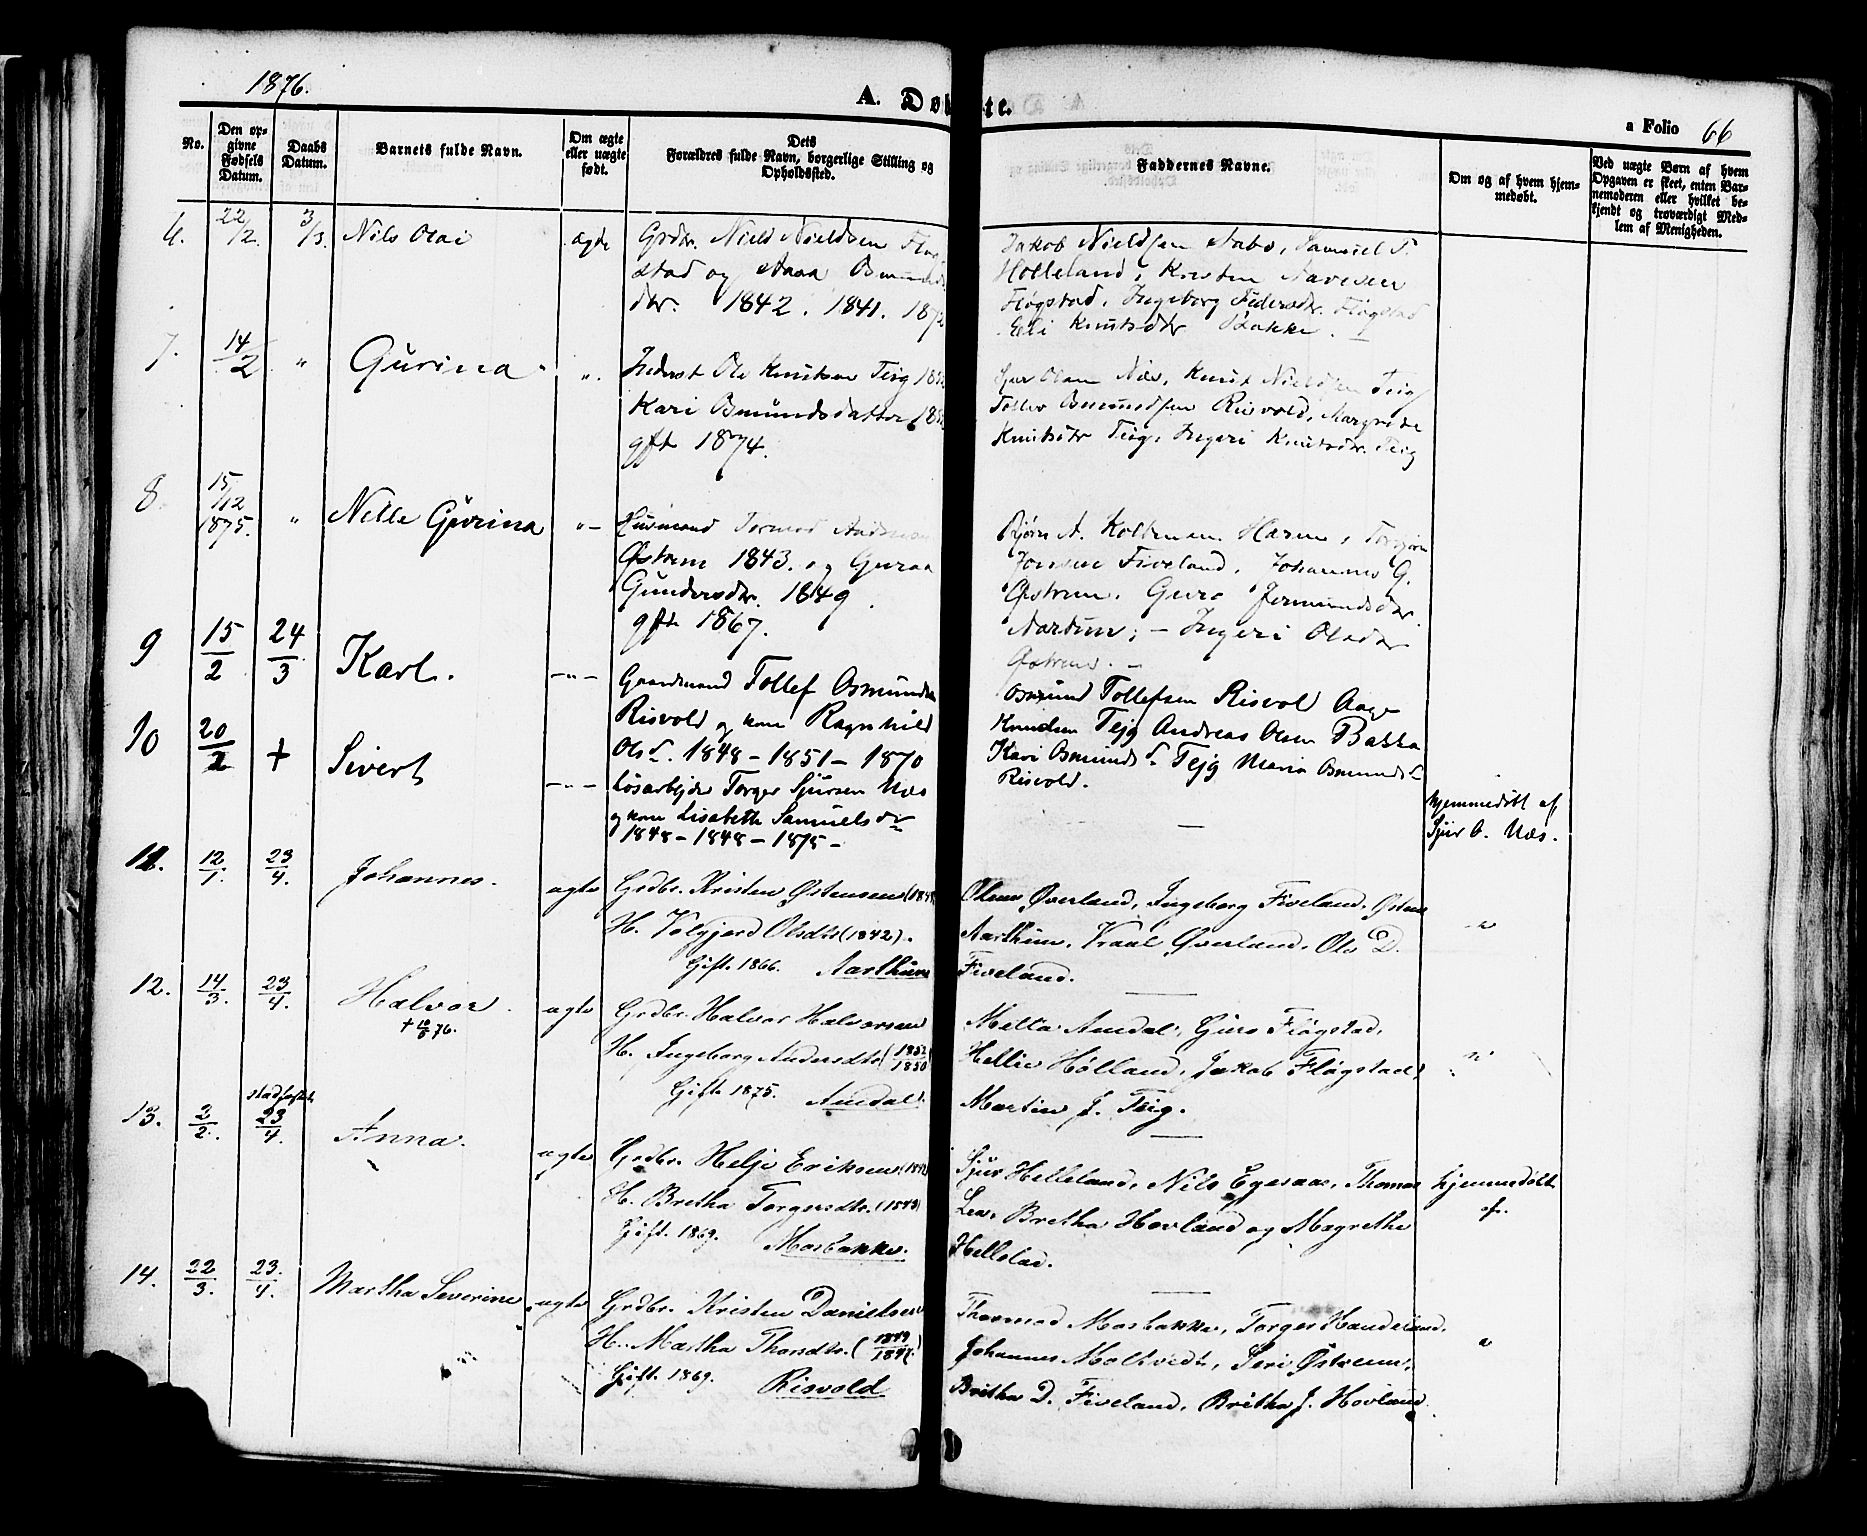 1876.
A. Døbte.
a Folio 66
No.
Den op-
givne
Fødsels
Datum.
Daabs
Datum.
Barnets fulde Navn.
Om ægte
eller uægte
født.
Dets
Forældres fulde Navn, borgerlige Stilling og
Opholdssted.
Faddernes Navne.
Om og af hvem hjem-
medøbt.
Ved uægte Børn af hvem
Opgaven er skeet, enten Bar-
nemoderen eller hvilket be-
kjendt og troværdigt Med-
lem af Menigheden.
6. 22/2. 3/3. Nils Olai ægte
Grdbr. Nield Nieldsen
stad og Aasa Osmunds
dtr. 1842. 1841. 1872
Jakob Nieldsen Sabø, Samuel T.
Holleland, Kristen
Fløgstad, Ingeborg Pedersdtr. Fløgstad
Eli Knutsdtr Bakke. –
7. 14/2 " Gurina " .
Inderst Ole Knutsen Teig
Kari Osmundsdatter
gft 1874.
Sjur Olsen Næs, Knut Nieldsen Teig
Tollev Osmundsen Risvold, Margrete
Knutsdtr Teig, Ingeri Knutsdtr. Teig
8. 15/12 1875. " Nille Gurina " –
Husmand Tormod
Østrem 1843. og Guroa
Gundersdtr. 1849.
gft 1867.
Bjørn A.
Jonsen Fiveland, Johannes G.
Østrem, Guro
; – Ingeri Olsdtr
Østrem. –
9 15/2 24/3 Karl. – " –
Gaardmand Tollef Osmunds
Risvold og kone Ragnhild
Olsd. 1848 – 1851 – 1870
Osmund Tollefsen Risvol Aage
Knudsen Tejg Andreas Olsen Bakka
Kari Osmundsd. Tejg Maria Osmundsd
Risvold.
10 20/2 + Sivert – " –
Løsarbejder Torger Sjursen Næs
og kone Lisabeth Samuelsdr
1848 – 1848 – 1875 –
–
hjemmedøbt af
Sjur O. Næs.
11. 12/1. 23/4. Johannes. ægte
Grdbr. Kristen Østensen
H. Valgjerd Olsdtr (1842).
Gift. 1866. Aarthun
Øverland, Ingeborg Fiveland, Østen
Aarthun, Øverland, Ole D.
Fiveland.
"
12. 14/3. 23/4. Halvor. ægte
+ 10/5 76.
Grdbr. Halvor Halvorsen
H. Ingeborg Andersdtr (1852/1850)
Gift. 1875. Amdal.
Metta Amdal, Guro Fløgstad,
Hellie Hølland, Jakob Fløgstad,
Martin J. Teig.
"
13. 2/2. stadfæstet 23/4. Anna. ægte
Grdbr. Helje Eriksen
H. Bretha Torgersdtr. (1843)
Gift. 1869. Mosbakke.
Sjur Helleland, Nils Egesaas, Thomas
Lea, Bretha Hovland og Magrethe
Hellelad.
hjemmedøbt
af.
14. 22/3. 23/4. Martha Severine ægte
Grdbr. Kristen Danielsen
H. Martha Thorsdtr.
Gift. 1869. Risvold
Thormod Mosbakke, Torger Handeland,
Johannes Moltvedt, Seri Østrem,
Britha D. Fiveland, Britha J. Hovland.
"